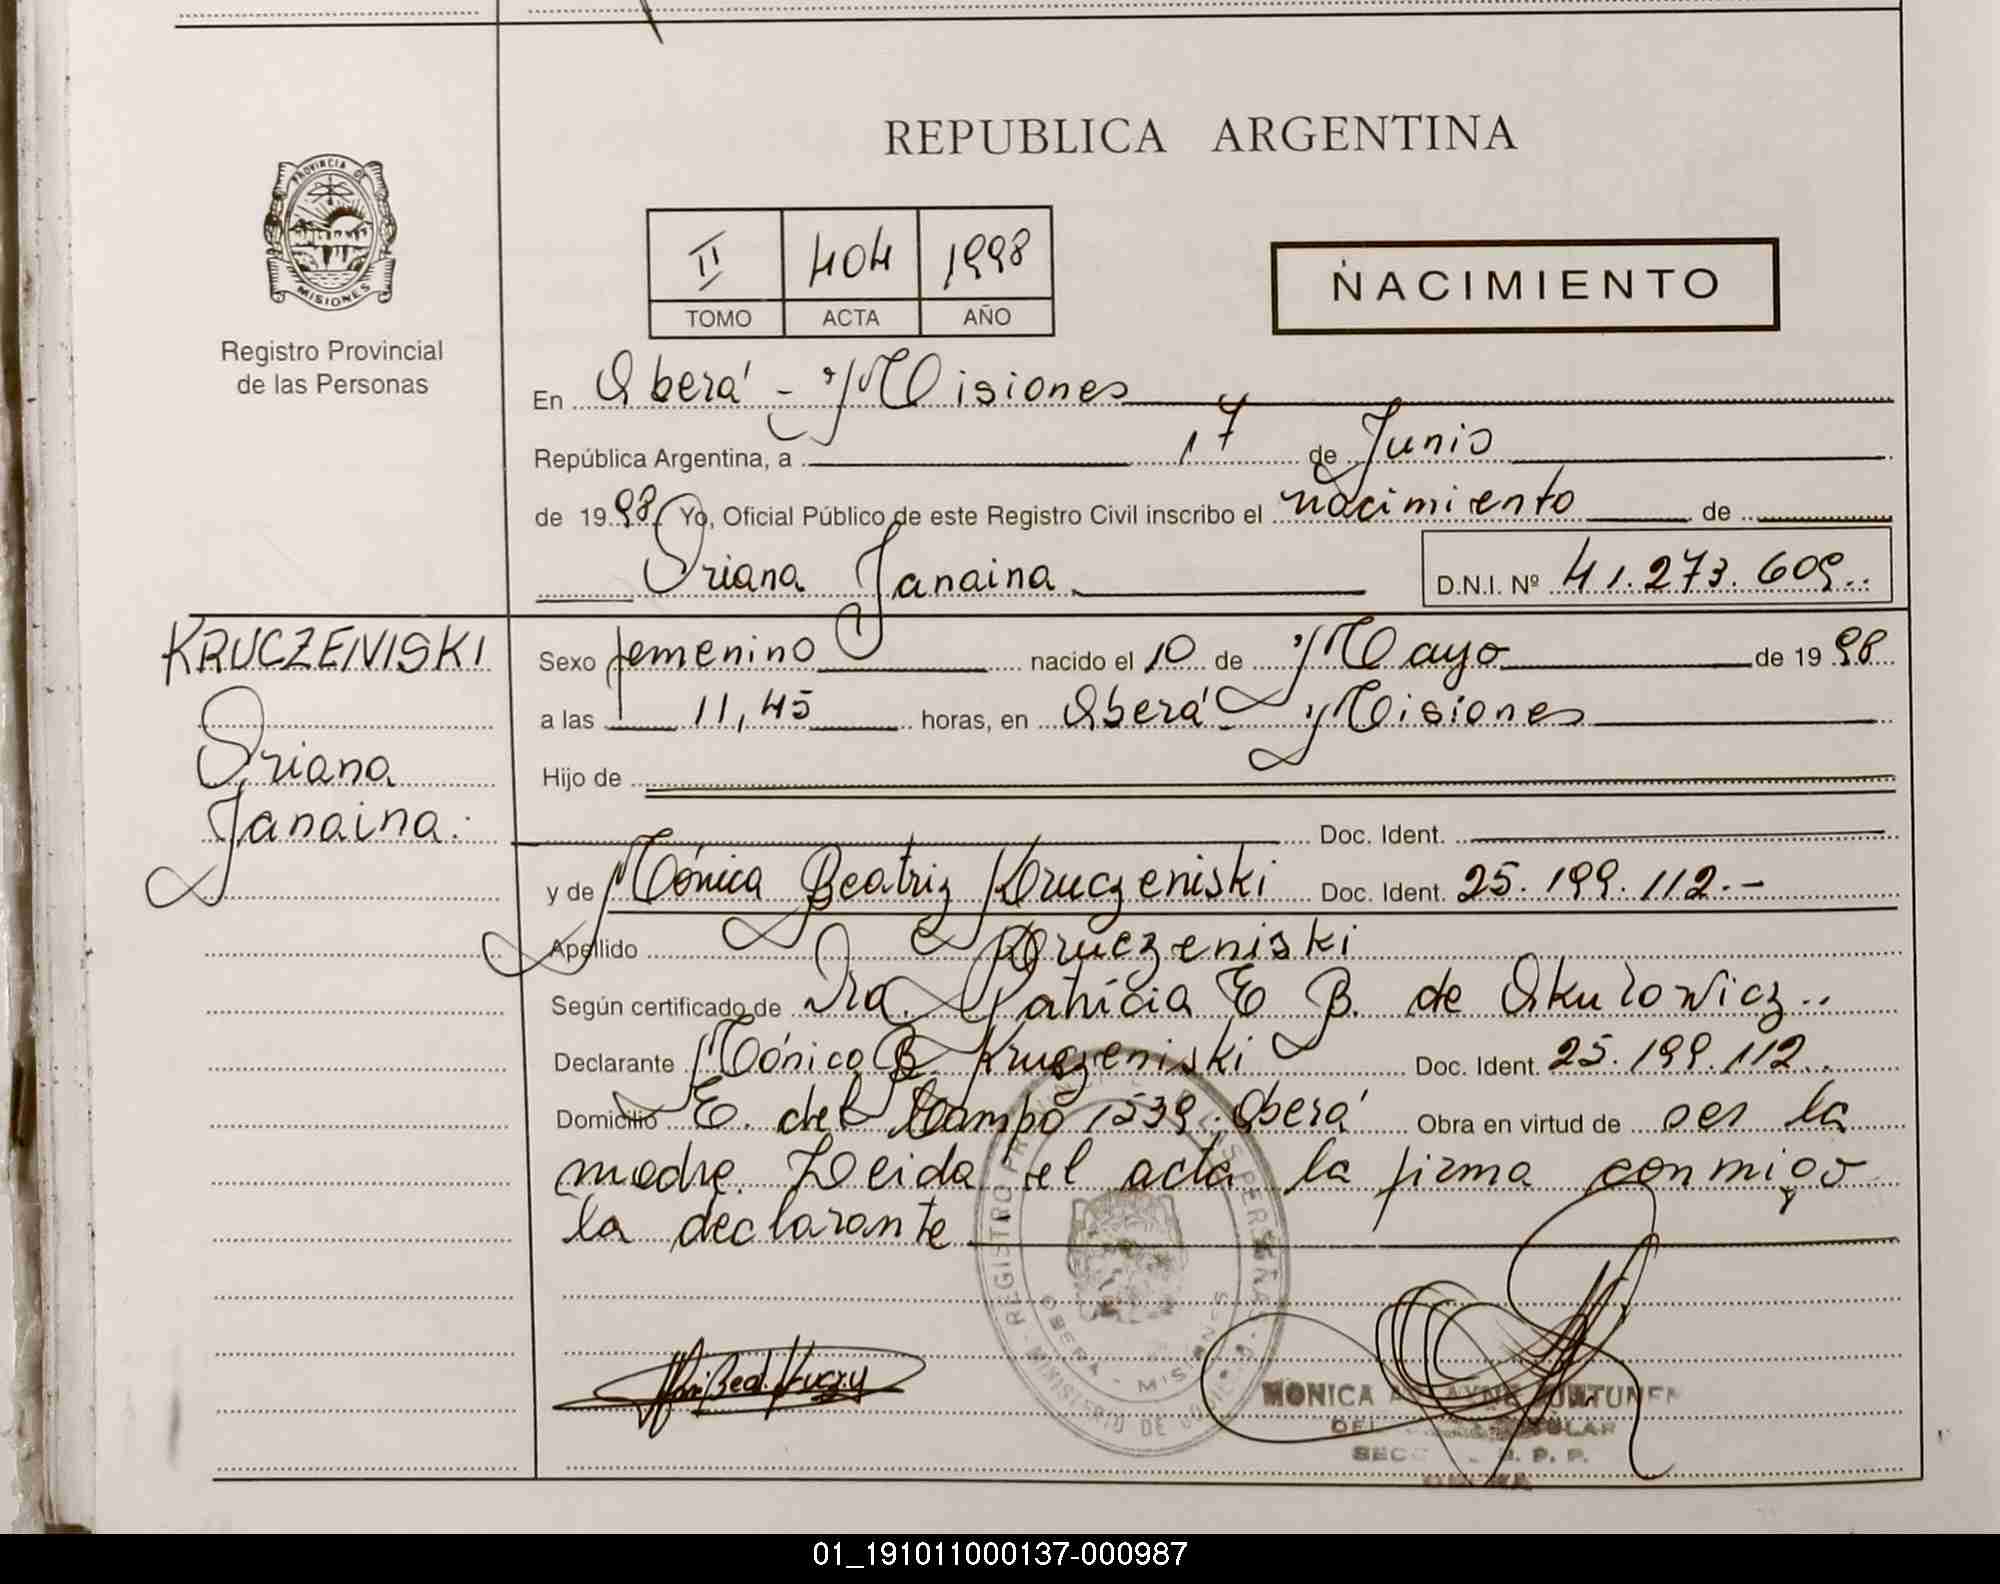 REPUBLICA ARGENTINA
PROVINCIA DE
MISIONES
Registro Provincial
de las Personas
II 404 1998
TOMO ACTA AÑO
NACIMIENTO
En Oberá - Misiones
República Argentina, a 17 de Junio
de 1998 Yo, Oficial Público de este Registro Civil inscribo el nacimiento de
Oriana Janaina D.N.I. Nº 41.273.609..
KRUCZENISKI
Oriana
Janaina.
Sexo femenino nacido el 10 de Mayo de 1998
a las 11,45 horas, en Oberá - Misiones
Hijo de
Doc. Ident.
y de Mónica Beatriz Kruczeniski Doc. Ident. 25.199.112.-
Apellido Kruczeniski
Según certificado de Dra. Patricia E B. de Skurowicz..
Declarante Mónica B. Kruczeniski Doc. Ident. 25.199.112..
Domicilio E. del Campo 1539. Oberá Obra en virtud de ser la
madre. Leida el acta la firma conmigo
la declarante
REGISTRO PERSONAS
OBERA - MISIONES
MINISTERIO DE
MONICA
SECC
01_191011000137-000987